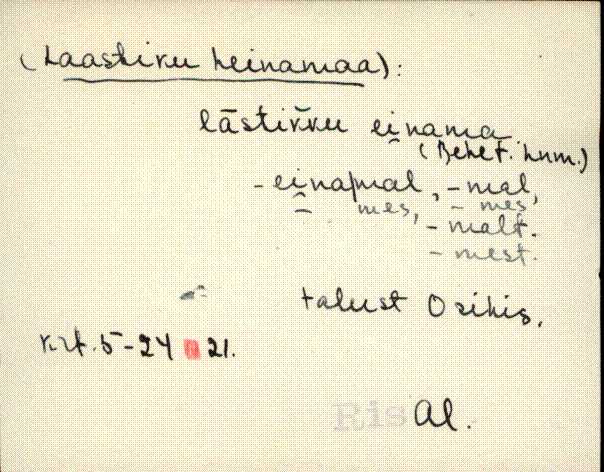 (Laastiku heinamaa):
lāstik̆ku ei̯nama
(Behef. hum.)
-ei̯napmal, -mal,
mes, - mes
- malt.
- mest.
talust Osikis,
21.
Ris Al.